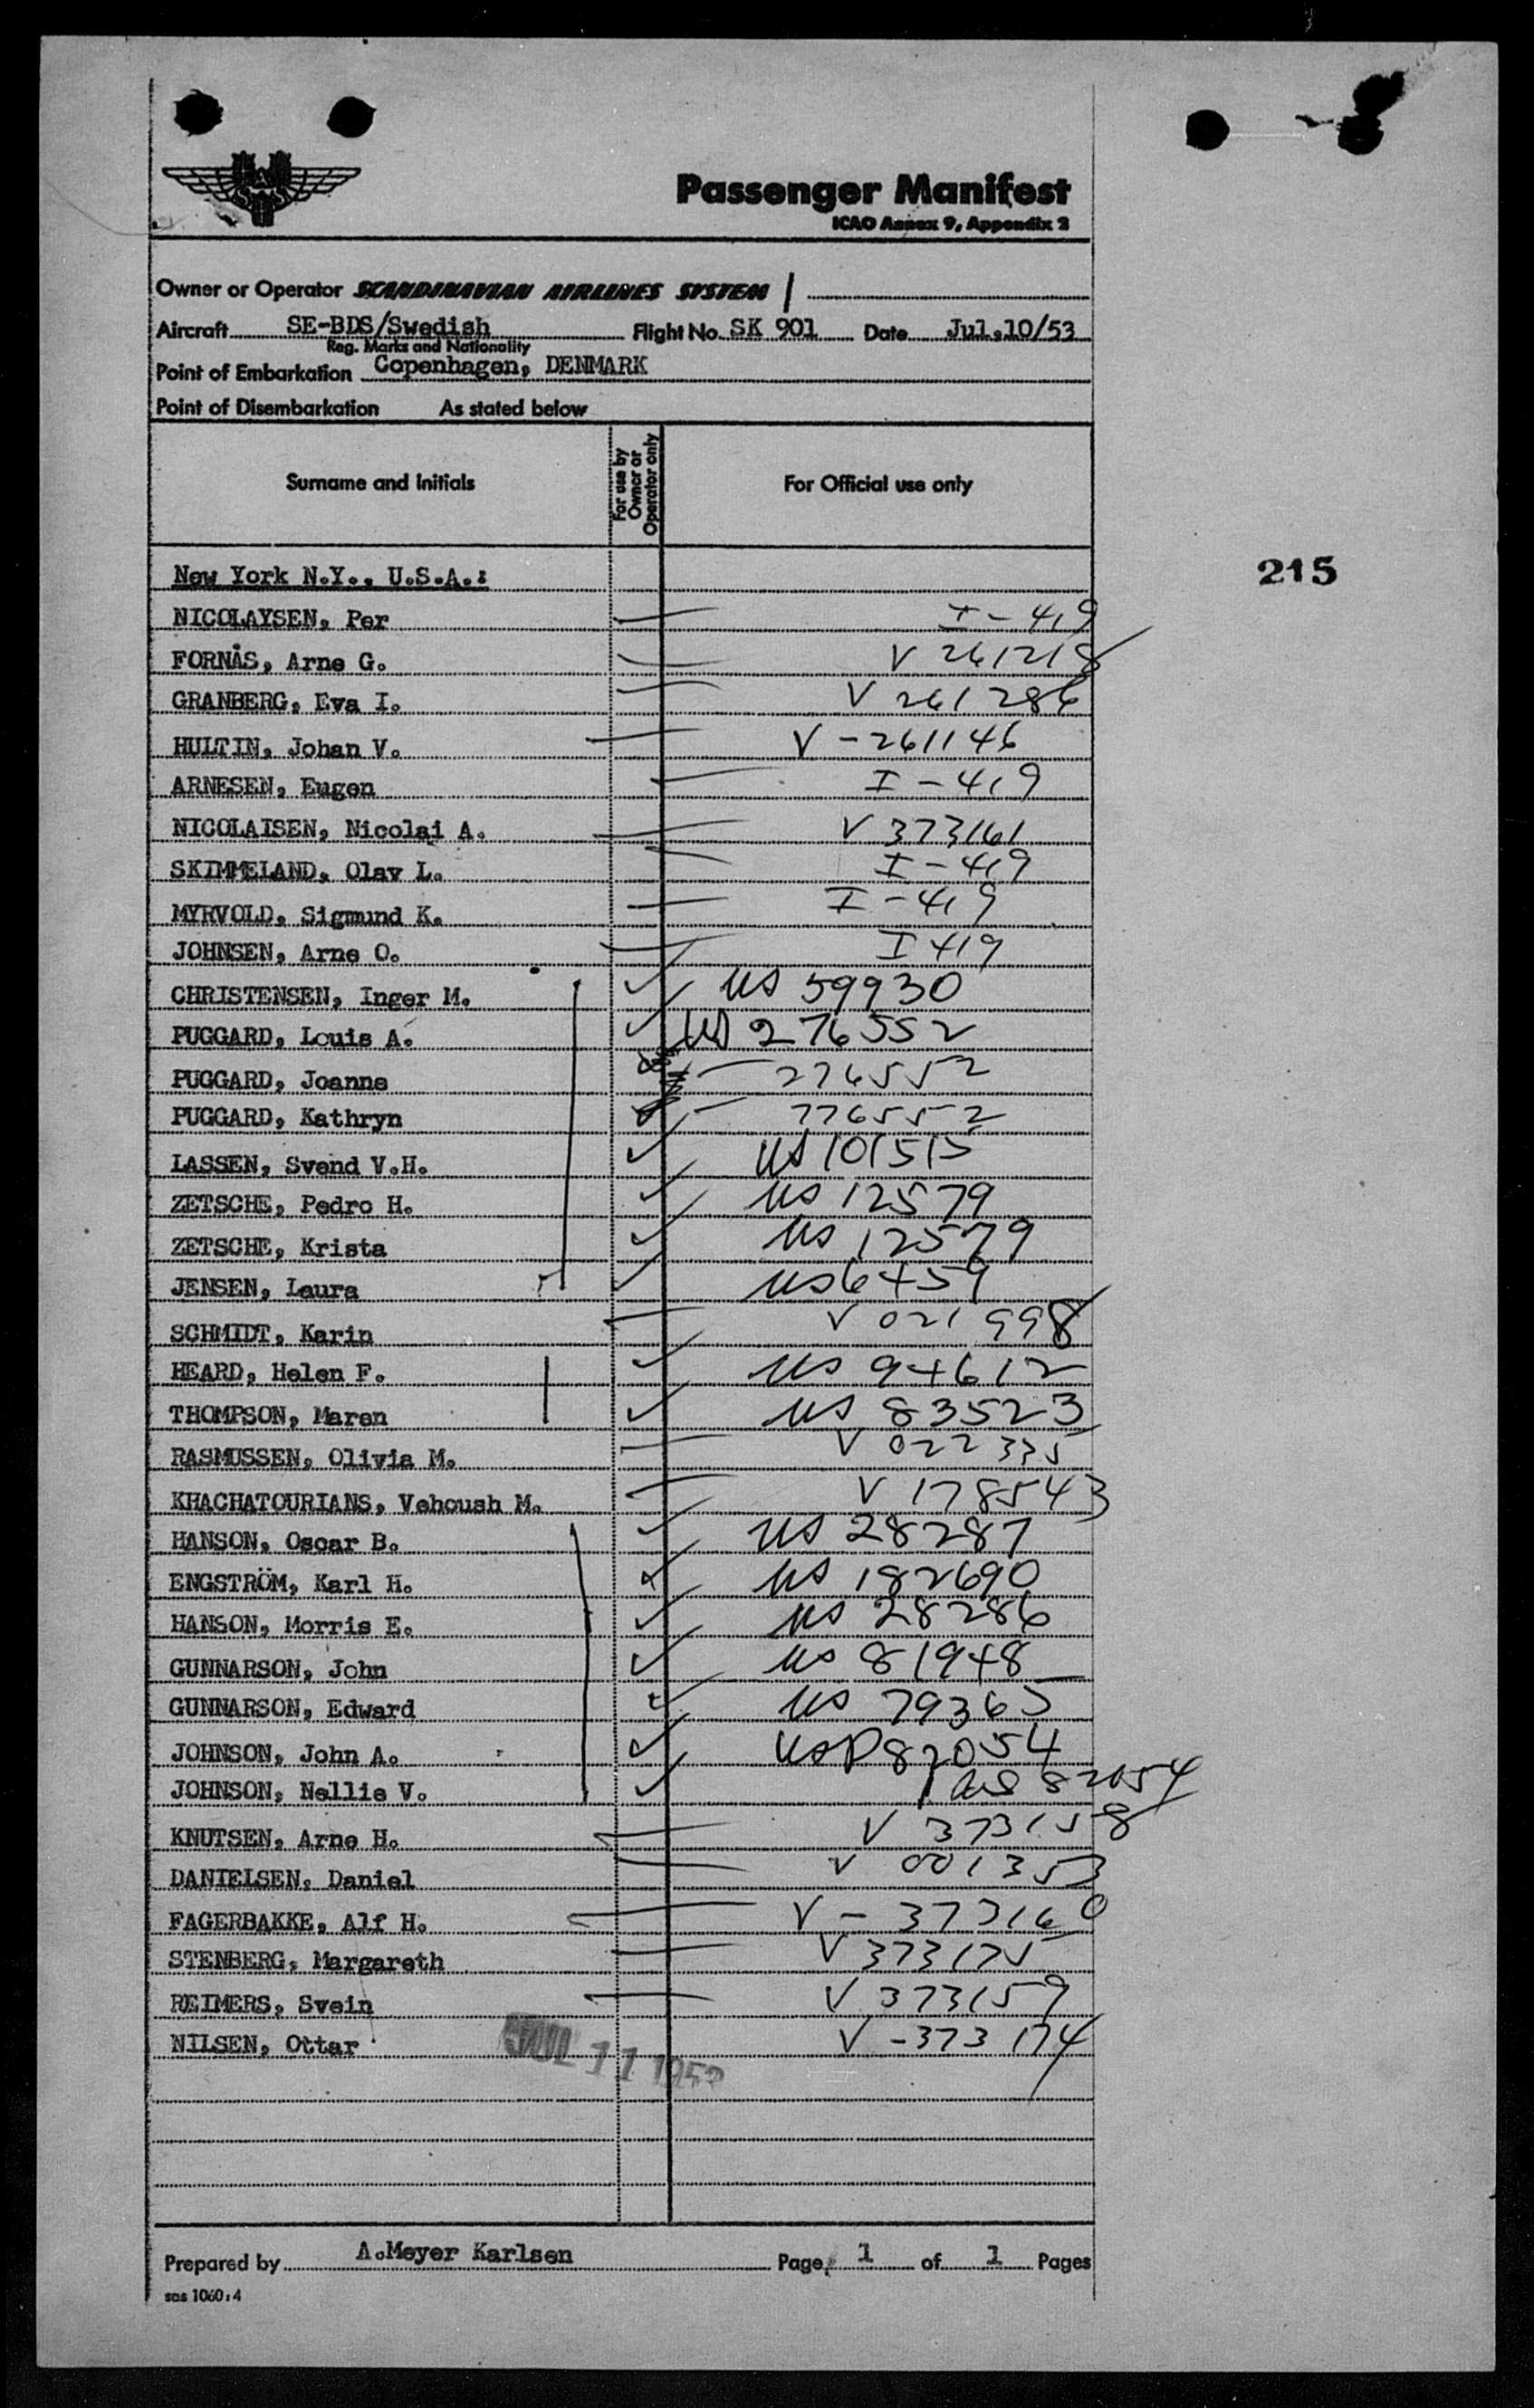 Passenger Manifest
ICAO Annex 9, Appendix 2
Owner or Operator SCANDINAVIAN AIRLINES SYSTEM
Aircraft SE-BDS/Swedish Flight No. SK 901 Date Jul.10/53
Reg. Marks and Nationality
Point of Embarkation Copenhagen, DENMARK
Point of Disembarkation As stated below
Surname and Initials For use by Owner or Operator only For Official use only
New York N.Y., U.S.A.:
215
NICOLAYSEN, Per I - 419
FORNÅS, Arne G. V 261218
GRANBERG, Eva I. V 261286
HULTIN, Johan V. V - 261146
ARNESEN, Eugen I - 419
NICOLAISEN, Nicolai A. V 373161
SKIMMELAND, Olav L. I - 419
MYRVOLD, Sigmund K. I - 419
JOHNSEN, Arne O. I 419
CHRISTENSEN, Inger M. US 59930
PUGGARD, Louis A. US 276552
PUGGARD, Joanne 276552
PUGGARD, Kathryn 276552
LASSEN, Svend V.H. US 101515
ZETSCHE, Pedro H. US 12579
ZETSCHE, Krista US 12579
JENSEN, Laura US 6459
SCHMIDT, Karin V 021998
HEARD, Helen F. US 94612
THOMPSON, Maren US 83523
RASMUSSEN, Olivia M. V 022335
KHACHATOURIANS, Vehoush M. V 178543
HANSON, Oscar B. US 28287
ENGSTRÖM, Karl H. US 182690
HANSON, Morris E. US 28286
GUNNARSON, John US 81948
GUNNARSON, Edward US 79365
JOHNSON, John A. USP 82054
JOHNSON, Nellie V. US 82054
KNUTSEN, Arne H. V 373158
DANIELSEN, Daniel V 001353
FAGERBAKKE, Alf H. V - 373160
STENBERG, Margareth V 373175
REIMERS, Svein V 373159
NILSEN, Ottar V - 373174
JUL 11 1953
Prepared by A.Meyer Karlsen Page 1 of 1 Pages
sas 1060:4